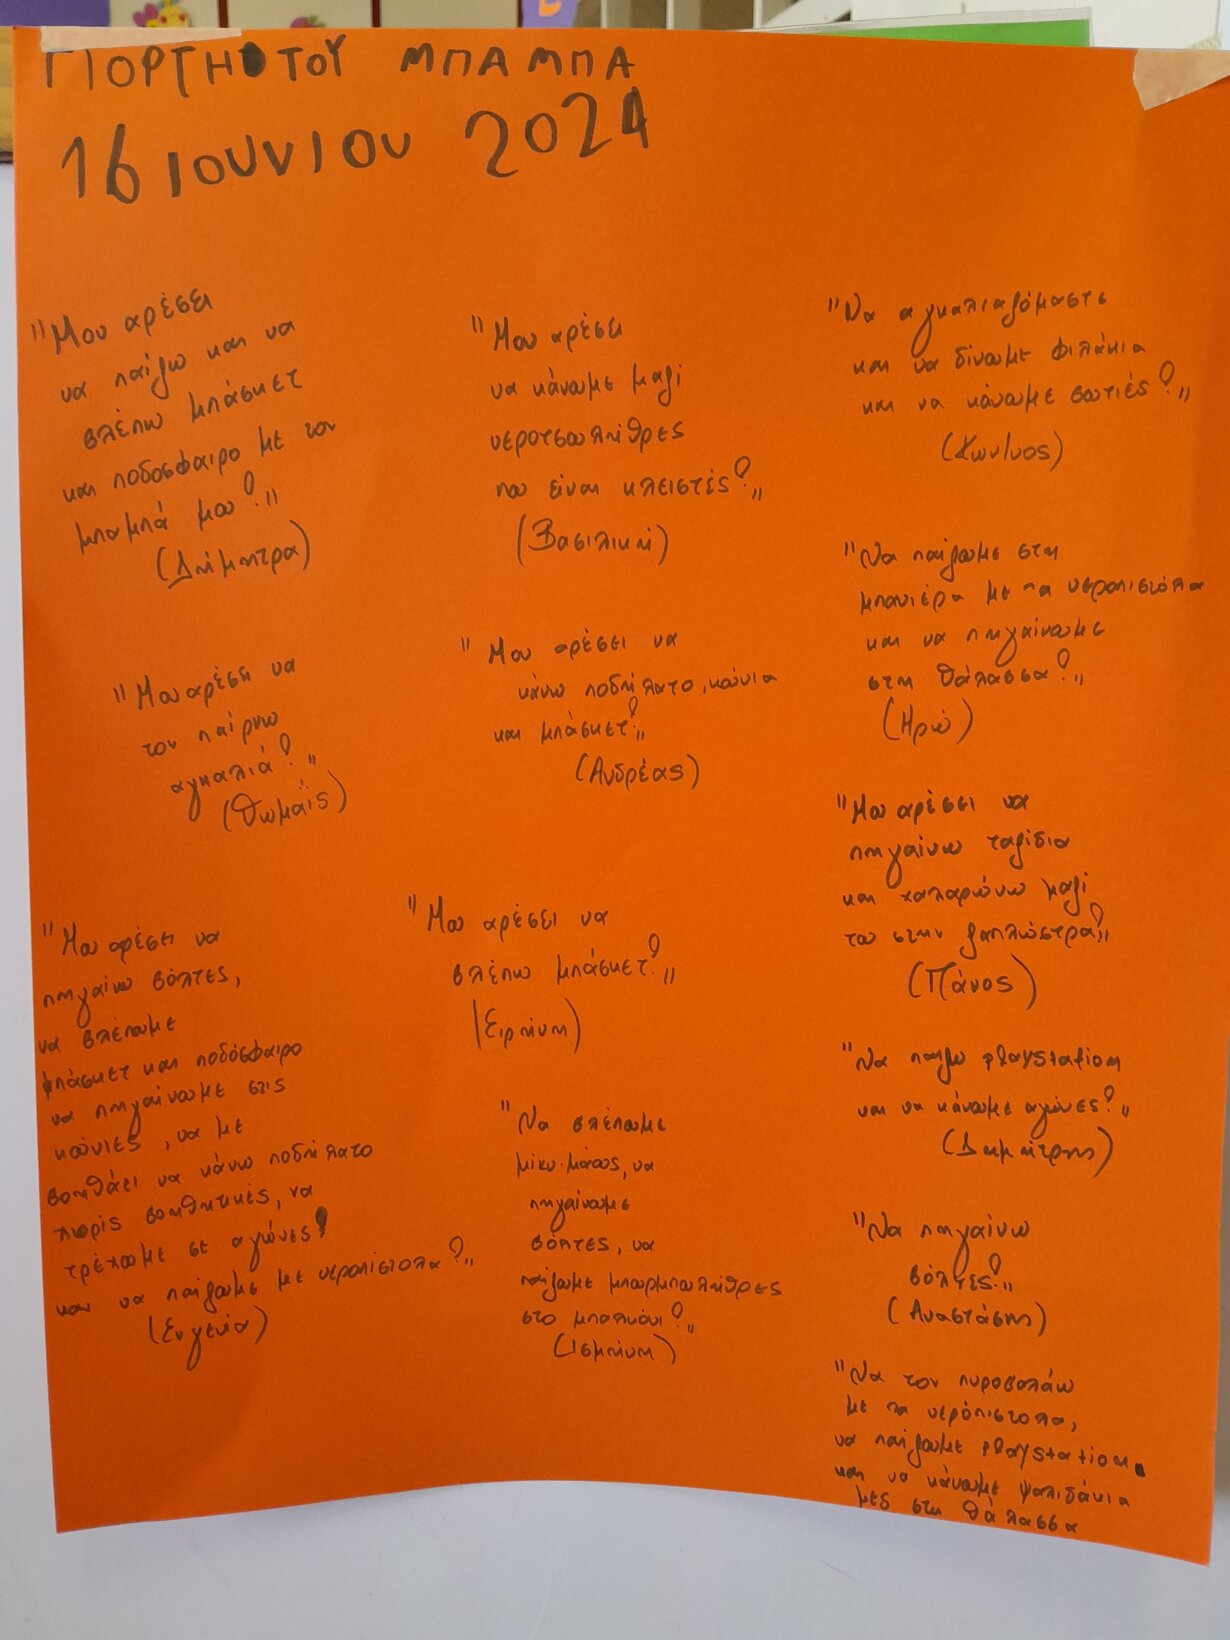 ΓΙΟΡΤΗ ΤΟΥ ΜΠΑΜΠΑ
16 ΙΟΥΝΙΟΥ 2024
"Μου αρέσει
να παίζω και να
βλέπω μπάσκετ
και ποδόσφαιρο με τον
μπαμπά μου!"
(Δήμητρα)
"Μου αρέσει να
τον παίρνω
αγκαλιά!"
(Θωμαΐς)
"Μου αρέσει να
πηγαίνω βόλτες,
να βλέπουμε
μπάσκετ και ποδόσφαιρο
να πηγαίνουμε στις
κούνιες, να με
βοηθάει να κάνω ποδήλατο
χωρίς βοηθητικές, να
τρέχουμε σε αγώνες
και να παίζουμε με νεροπίστολα!"
(Ευγενία)
"Μου αρέσει
να κάνουμε μαζί
νεροτσουλήθρες
που είναι κλειστές!"
(Βασιλική)
"Μου αρέσει να
κάνω ποδήλατο, κούνια
και μπάσκετ!"
(Ανδρέας)
"Μου αρέσει να
βλέπω μπάσκετ!"
(Ειρήνη)
"Να βλέπουμε
μίκυ μάους, να
πηγαίνουμε
βόλτες, να
παίζουμε μπουρμπουλήθρες
στο μπαλκόνι!"
(Ισμήνη)
"Να αγκαλιαζόμαστε
και να δίνουμε φιλάκια
και να κάνουμε βουτιές!"
(Κων/νος)
"Να παίζουμε στη
μπανιέρα με τα νεροπιστόλα
και να πηγαίνουμε
στη θάλασσα!"
(Ηρώ)
"Μου αρέσει να
πηγαίνω ταξίδια
και χαλαρώνω μαζί
του στην ξαπλώστρα!"
(Πάνος)
"Να παίζω playstation
και να κάνουμε αγώνες!"
(Δημήτρης)
"Να πηγαίνω
βόλτες!"
(Αναστάσης)
"Να τον πυροβολάω
με τα νερόπιστολα,
να παίζουμε playstation
και να κάνουμε ψαλιδάκια
στη θάλασσα